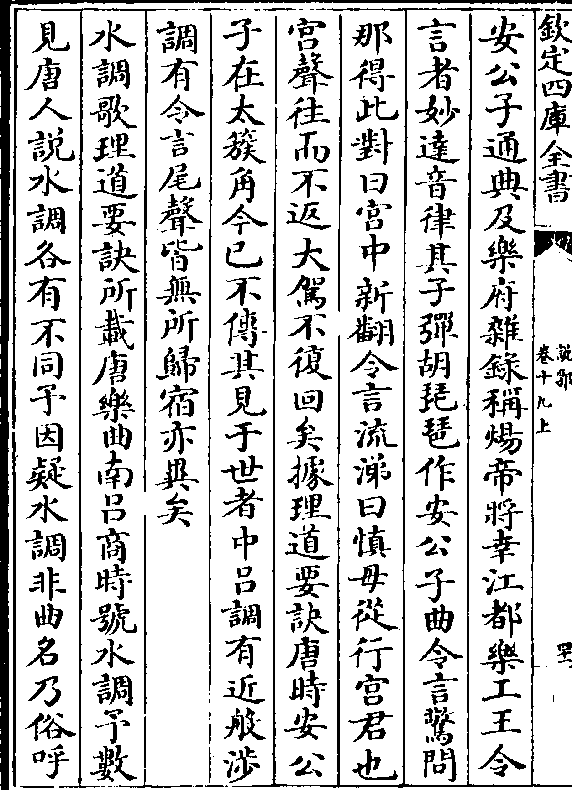 欽定四庫全書
說郛
卷十九上
安公子通典及樂府雜錄稱煬帝將幸江都樂工王令
言者妙達音律其子彈胡琵琶作安公子曲令言驚問
那得此對曰宮中新翻令言流涕曰慎毋從行宮君也
宮聲往而不返大駕不復回矣據理道要訣唐時安公
子在太簇角今已不傳其見于世者中吕調有近般涉
調有令言尾聲皆無所歸宿亦異矣
水調歌理道要訣所載唐樂曲南吕商時號水調予數
見唐人説水調各有不同予因疑水調非曲名乃俗呼